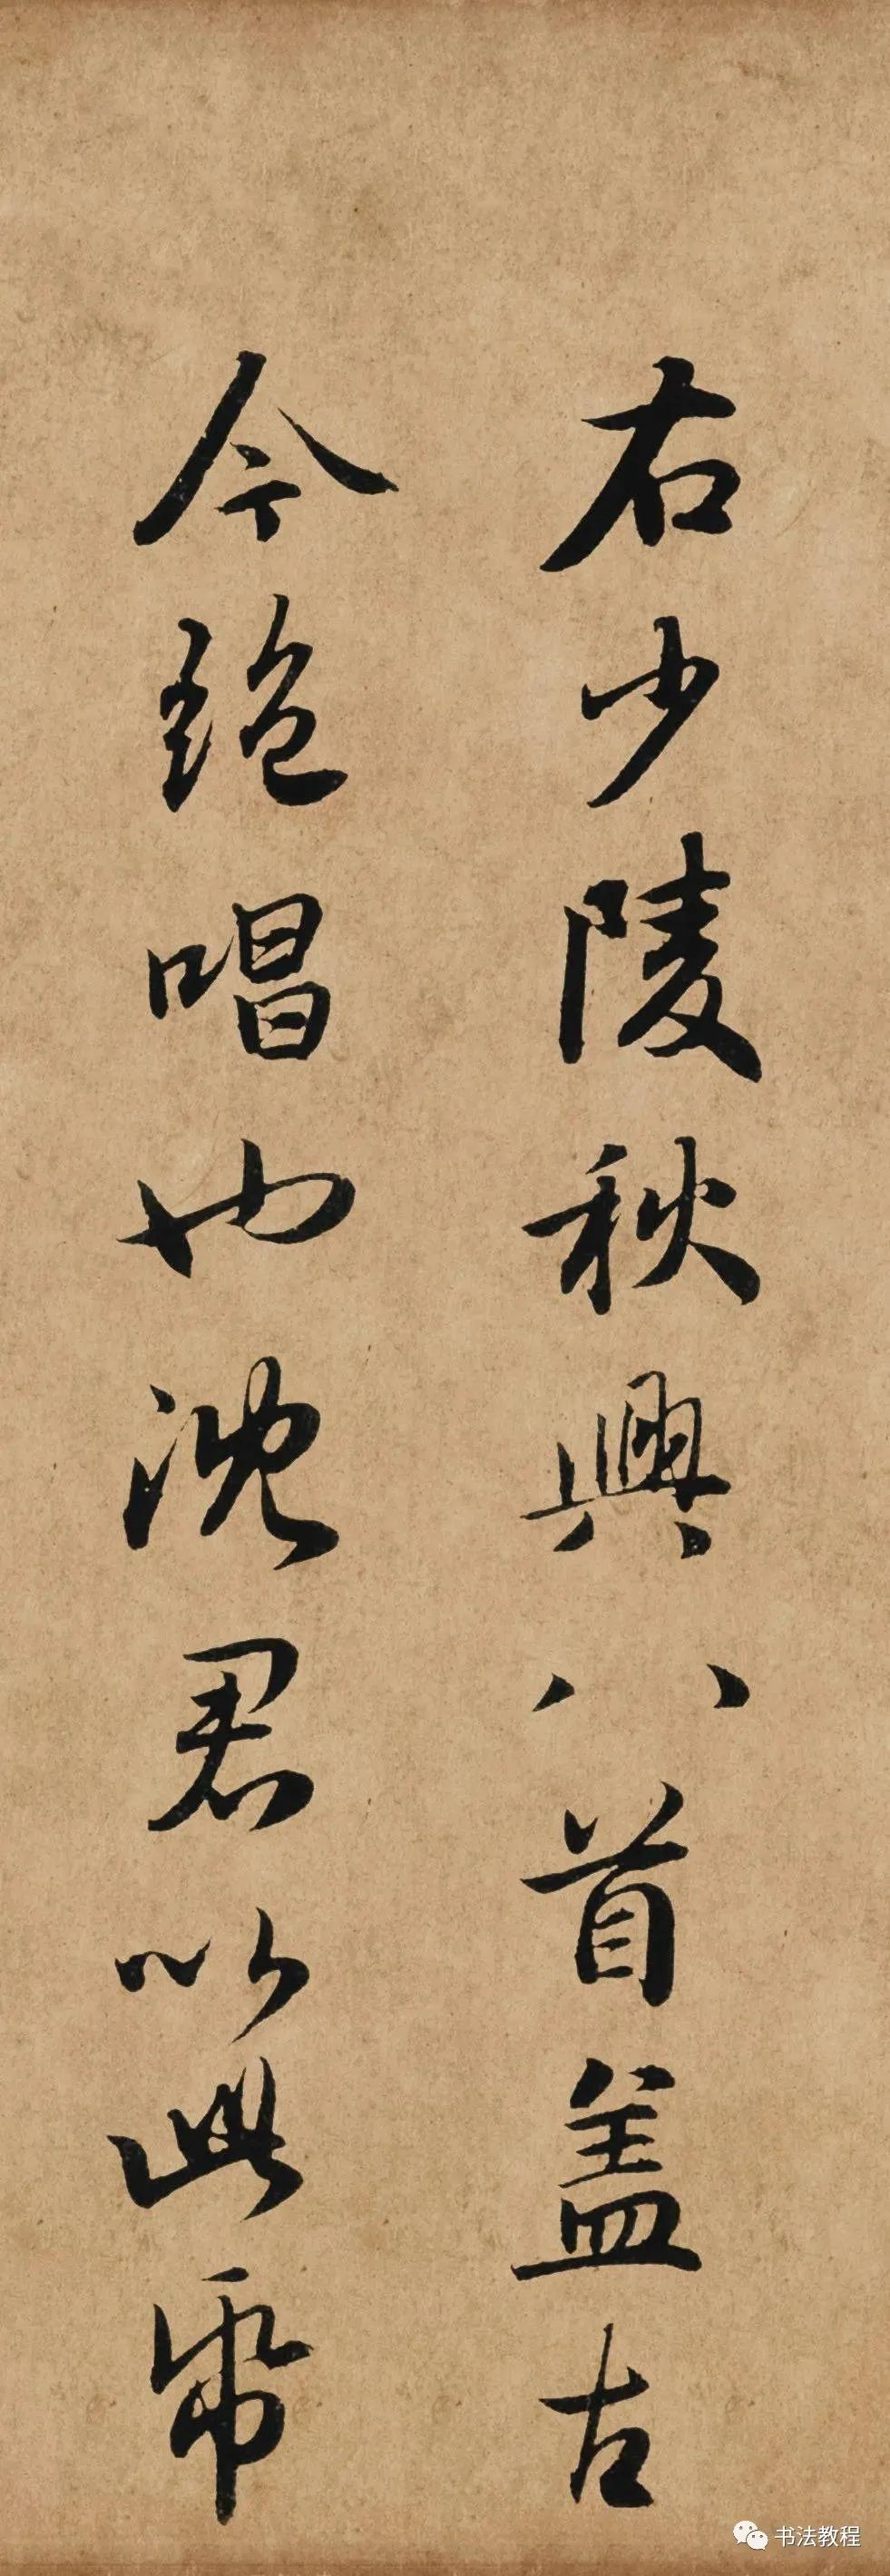 右少陵秋興八首盖古
今绝唱也沈君以此㡀
书法教程